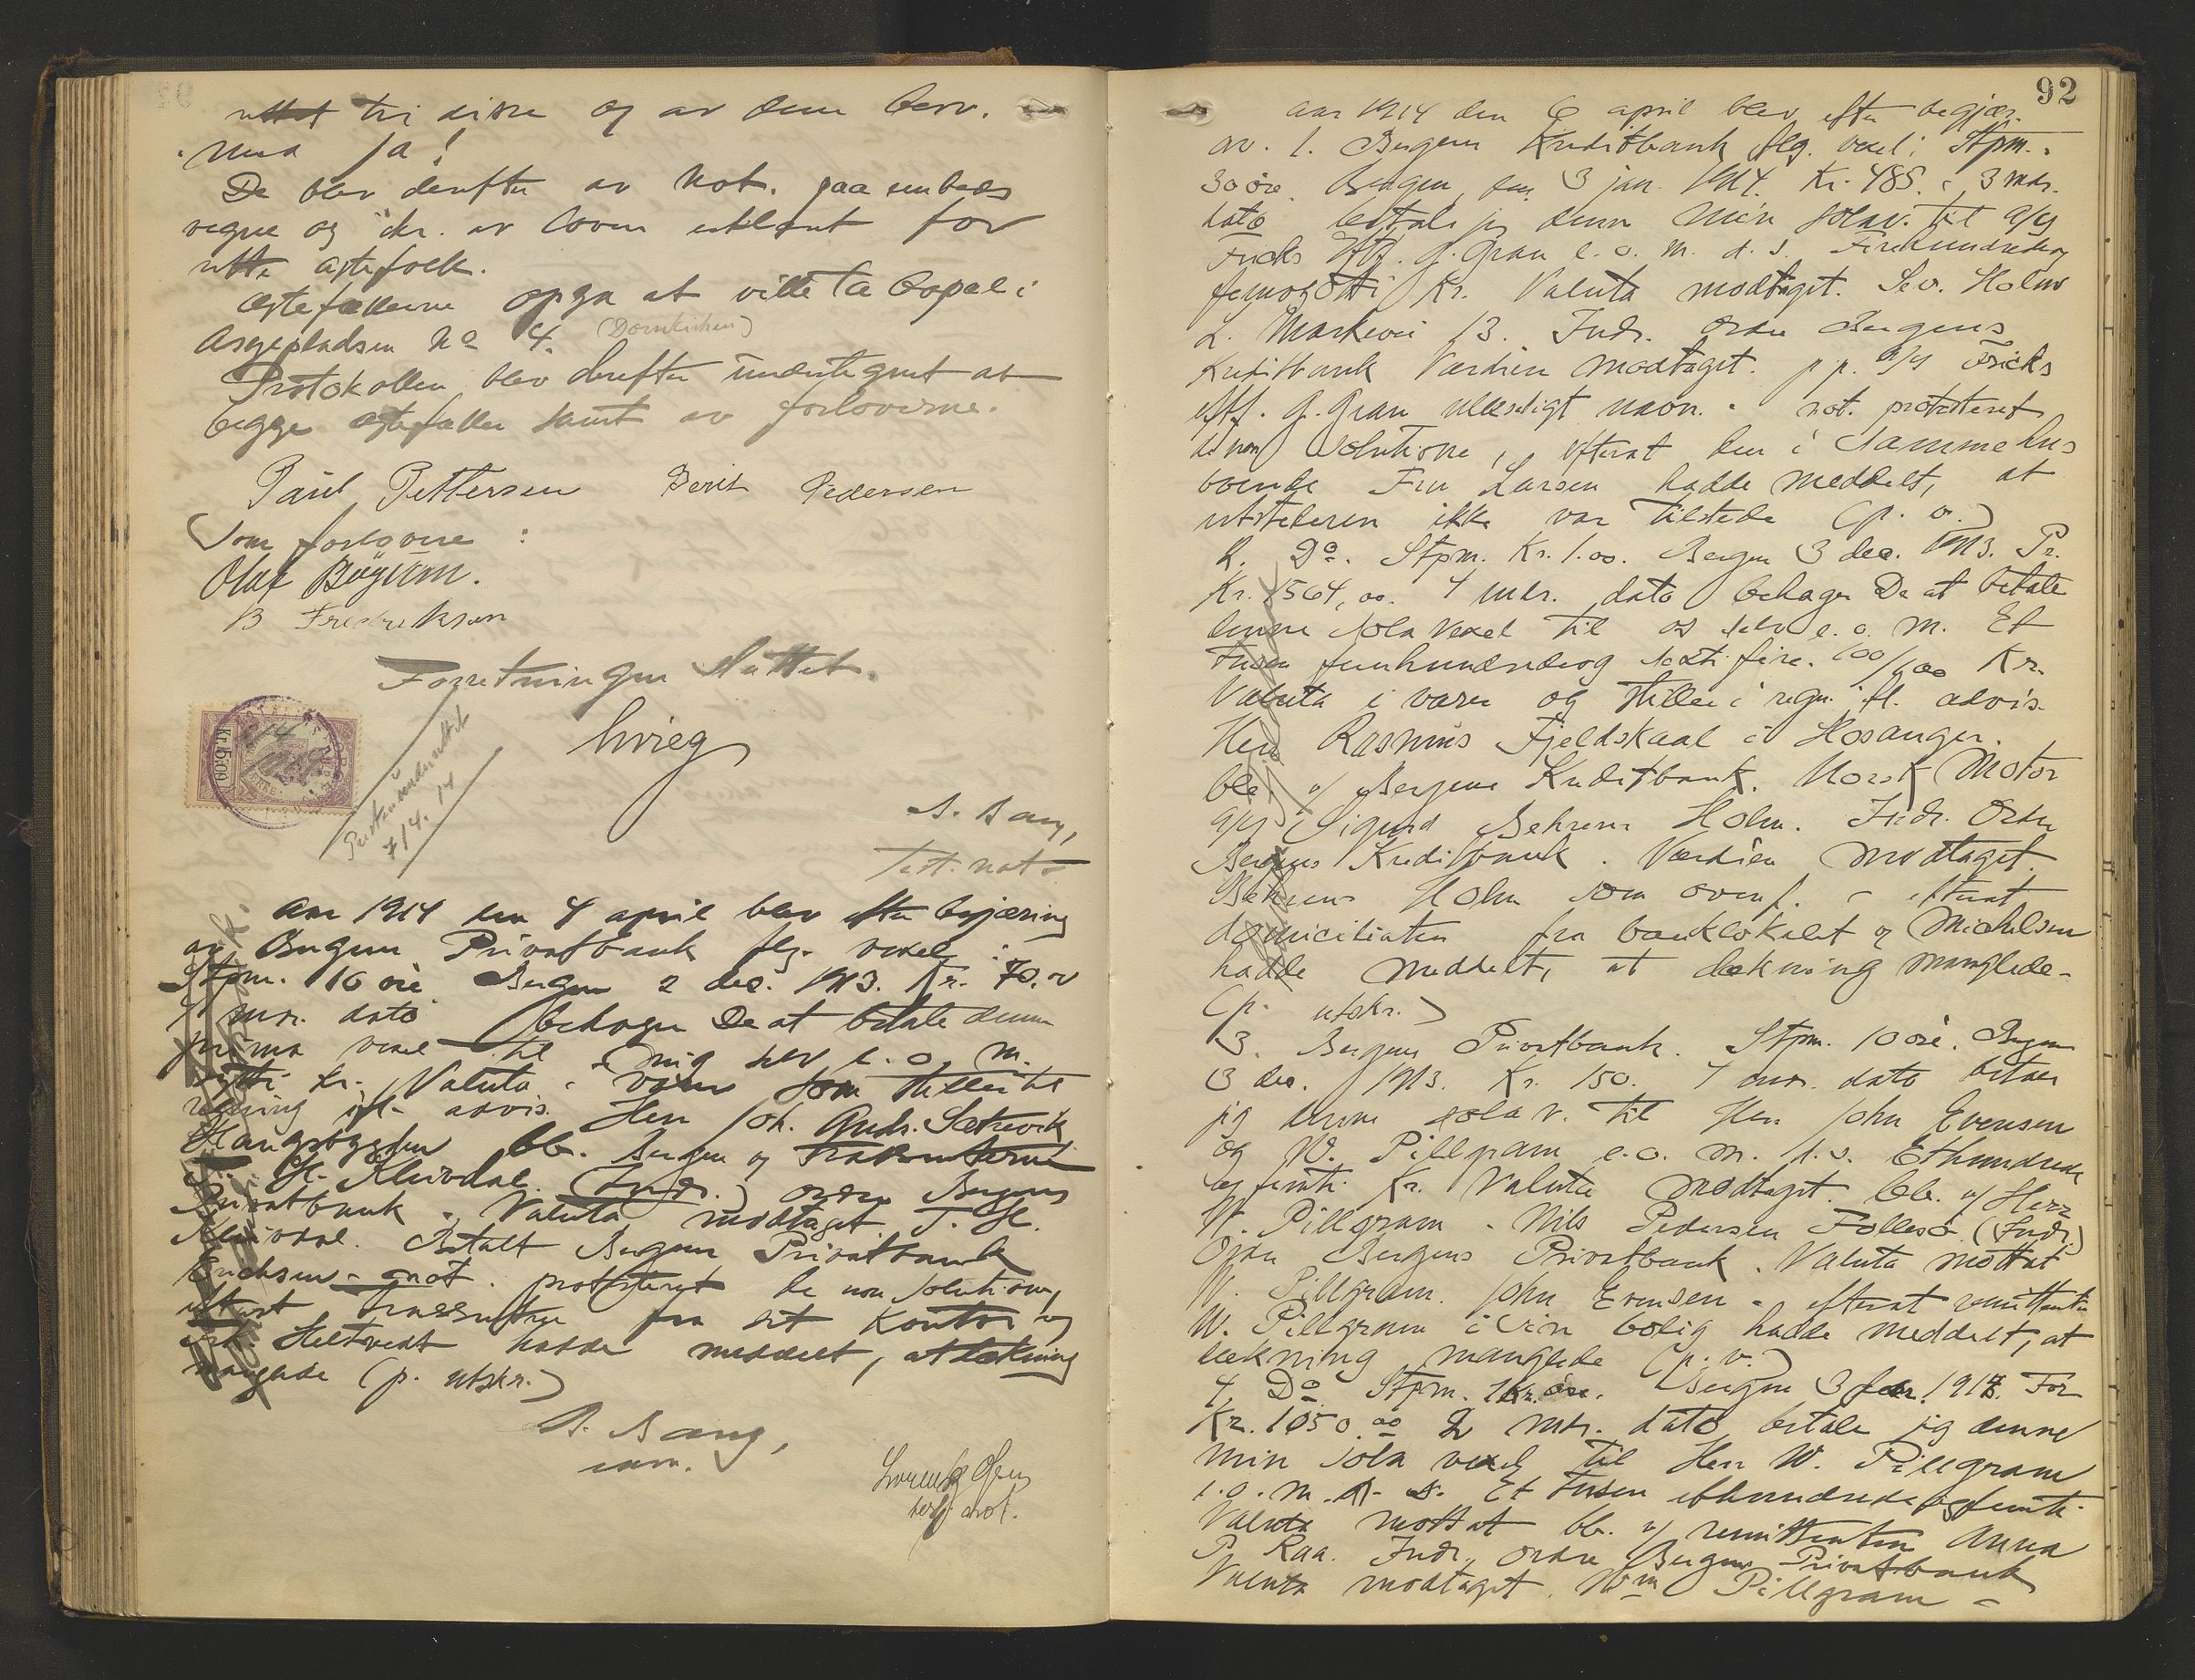 til disse og av dem besv.
med ja!
De blev derefter av not. paa embeds
vegne og ikr. av loven erklært for
rette egtefolk.
Egtefællerne opga at ville ta bopæl i
Asylpladsen No 4. (Domkirken)
Protokollen blev derefter undertegnet av
begge egtefæller samt av forloverne.
Paul Pettersen Berit Pedersen
Som forlovere:
Olaf Bøyum.
B Fredriksen
Forretningen sluttet.
Kr. 5.00
7/4. 14
A. Bang,
Test. not
Aar 1914 den 4 april blev efter begjæring
av Bergens Privatbank flg. vexel:
Stpm. 10 øre Bergen 2 dec. 1913. Kr. 70.
4 mdr. dato behager De at betale denne
prima vexel til mig selv e. o. m.
Sytti kr. Valuta i varer som stilles til
regning ifl. advis. Herr Joh. Andr. Sætrevik
Haugsbygden bb. Bergen
H. Kleivdal. (Indr.) ordre Bergens
Privatbank. Valuta modtaget T. H.
Kleivdal. Betalt Bergens Privatbank
Erichsen - not. protesteret de non solutione,
efterat fra sit kontor
hadde meddelt, at dækning
manglede (p. utskr.)
A. Bang,
not.
92
Aar 1914 den 6 april blev efter begjær.
av 1. Bergens Kreditbank flg. vexel: Stpm.
30 øre. Bergen, den 3 jan. 1914. Kr. 485. 3 mdr.
dato betaler jeg denne min solav. til A/S
Fricks Eftf. G. Gran e. o. m. d. s. Firehundredeog
femogotti Kr. Valuta modtaget. Sev. Holm
L. Markevei 13. Indr. Ordre Bergens
Kreditbank Værdien modtaget. pp. A/S Fricks
Eftf. G. Gran ulæseligt navn. - not. protesteret
de non solutione, efterat den i samme hus
boende Fru Larsen hadde meddelt, at
utstederen ikke var tilstede (p. v.)
2. Do. Stpm. Kr. 1.00. Bergen 3 dec. 1913. Pr.
Kr. 1564,00. 4 mdr. dato behager De at betale
denne sola vexel til os selv e. o. m. Et
tusen femhundredeog sextifire. 00/100 Kr.
Valuta i varer og stilles i regn. ifl. advis.
Herr Rasmus Fjeldskaal i Hosanger.
bb. o/ Bergens Kreditbank. Norsk Motor
A/S Sigurd Behrens Holm. Indr. Ordre
Bergens Kreditbank. Værdien modtaget.
Behrens Holm som ovenf. - efterat
domiciliaten fra banklokalet og Michelsen
hadde meddelt, at dækning manglede.
(p. utskr.)
3. Bergens Privatbank. Stpm. 10 øre. Bergen
3 dec. 1913. Kr. 150. 4 mdr. dato betaler
jeg denne sola v. til Herr John Evensen
og W. Pillgram e. o. m. d. s. Ethundrede
og femti Kr. Valuta modtaget. bb. o/ Herr
W. Pillgram. Nils Pedersen Follesø. (Indr.)
Ordre Bergens Privatbank. Valuta mottat
W. Pillgram. John Evensen - efterat remittenten
W. Pillgram i sin bolig hadde meddelt, at
dækning manglede (p. v.)
4. Do Stpm. 1 Kr. Bergen 3 febr. 1914. For
Kr. 1050.00 2 mdr. dato betaler jeg denne
min sola vexel til Herr W. Pillgram
e. o. m. d. s. Et tusen ethundrede og femti.
Valuta mottat bb. o/ remittenten Anna
P. Raa. Indr. Ordre Bergens Privatbank
Valuta modtaget. Wm Pillgram -